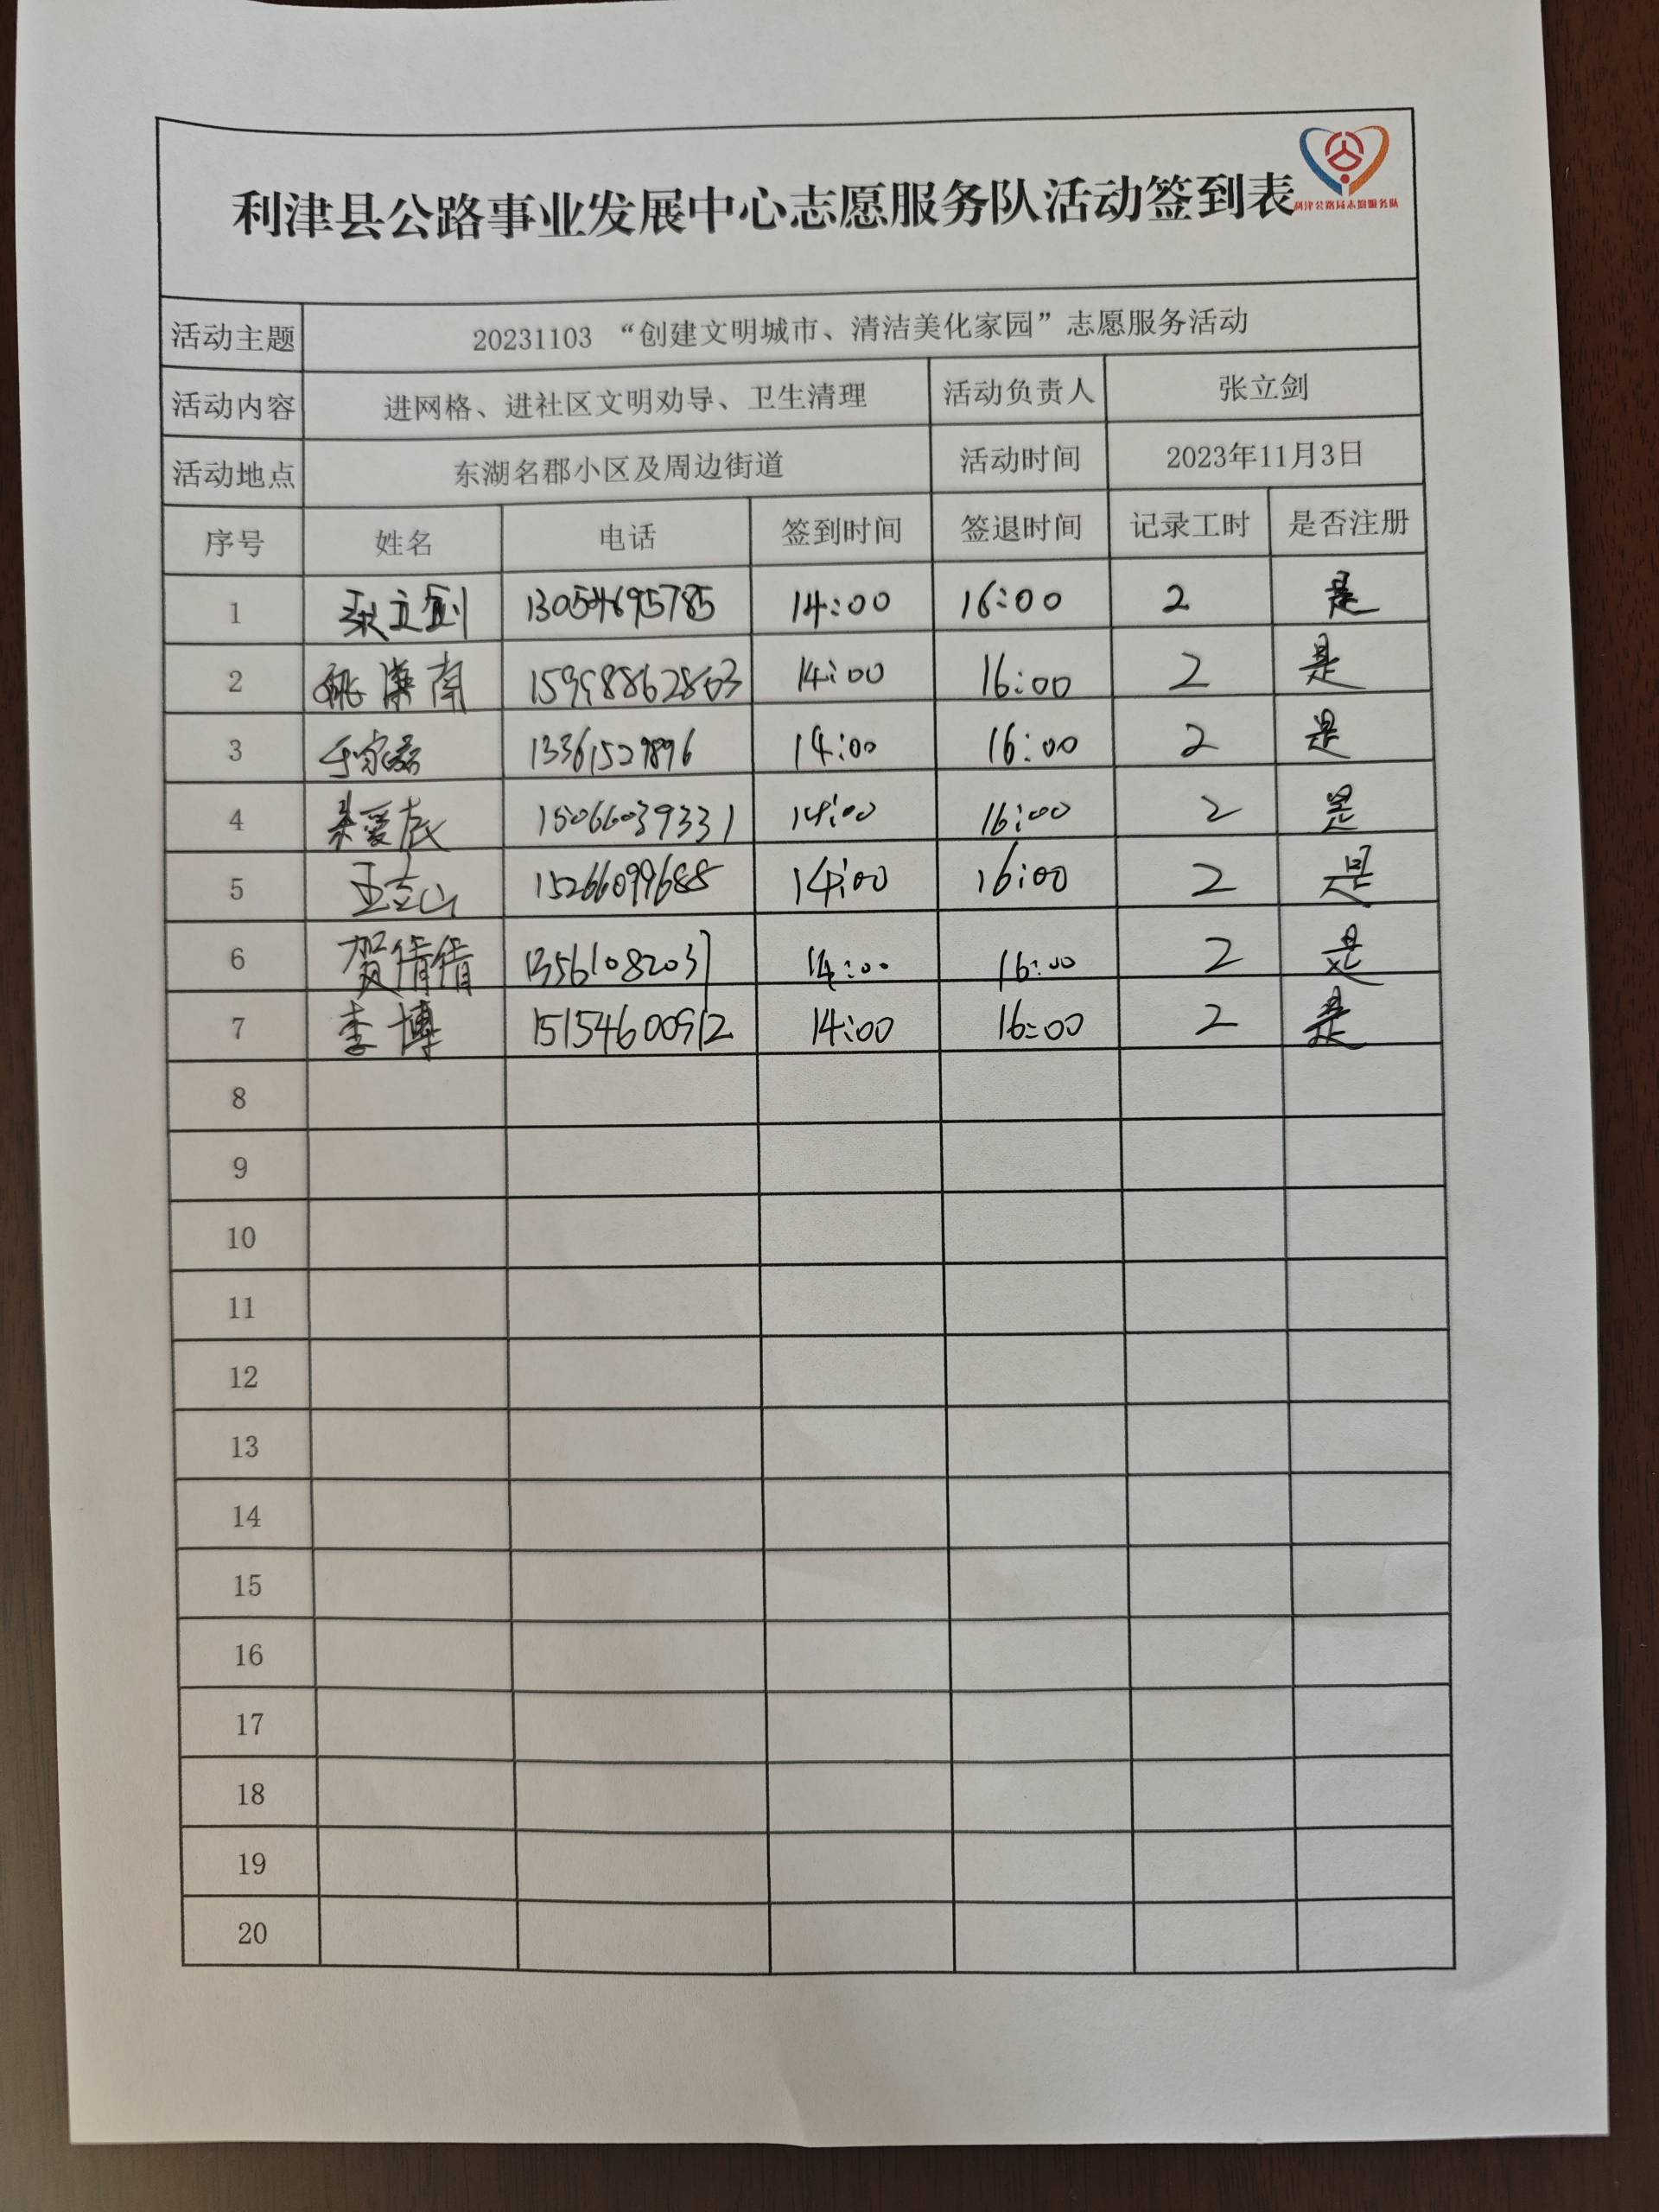 利津县公路事业发展中心志愿服务队活动签到表
利津公路局志愿服务队
活动主题 20231103 “创建文明城市、清洁美化家园”志愿服务活动
活动内容 进网格、进社区文明劝导、卫生清理 活动负责人 张立剑
活动地点 东湖名郡小区及周边街道 活动时间 2023年11月3日
序号 姓名 电话 签到时间 签退时间 记录工时 是否注册
1 张立剑 13054695785 14:00 16:00 2 是
2 南 14:00 16:00 2 是
3 13361529896 14:00 16:00 2 是
4 15066039331 14:00 16:00 2 是
5 王立山 15266099688 14:00 16:00 2 是
6 贺倩倩 13561082037 14:00 16:00 2 是
7 李博 15154600912 14:00 16:00 2 是
8
9
10
11
12
13
14
15
16
17
18
19
20